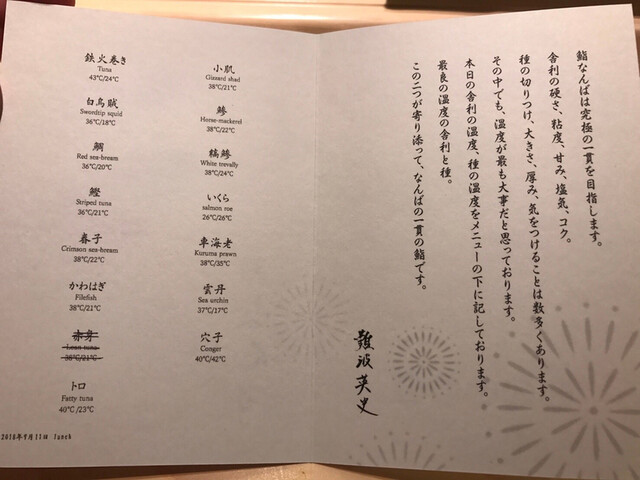 鉄火巻き
Tuna
43℃/24℃
白烏賊
Swordtip squid
36℃/18℃
鯛
Red sea-bream
36℃/20℃
鰹
Striped tuna
36℃/21℃
春子
Crimson sea-bream
38℃/22℃
かわはぎ
Filefish
38℃/21℃
赤身
Lean tuna
38℃/21℃
トロ
Fatty tuna
40℃/23℃
小肌
Gizzard shad
38℃/21℃
鯵
Horse-mackerel
38℃/22℃
縞鯵
White trevally
38℃/24℃
いくら
salmon roe
26℃/26℃
車海老
Kuruma prawn
38℃/35℃
雲丹
Sea urchin
37℃/17℃
穴子
Conger
40℃/42℃
2018年9月11日 lunch
鮨なんばは究極の一貫を目指します。
舎利の硬さ、粘度、甘み、塩気、コク。
種の切りつけ、大きさ、厚み、気をつけることは数多くあります。
その中でも、温度が最も大事だと思っております。
本日の舎利の温度、種の温度をメニューの下に記しております。
最良の温度の舎利と種。
この二つが寄り添って、なんばの一貫の鮨です。
難波英史